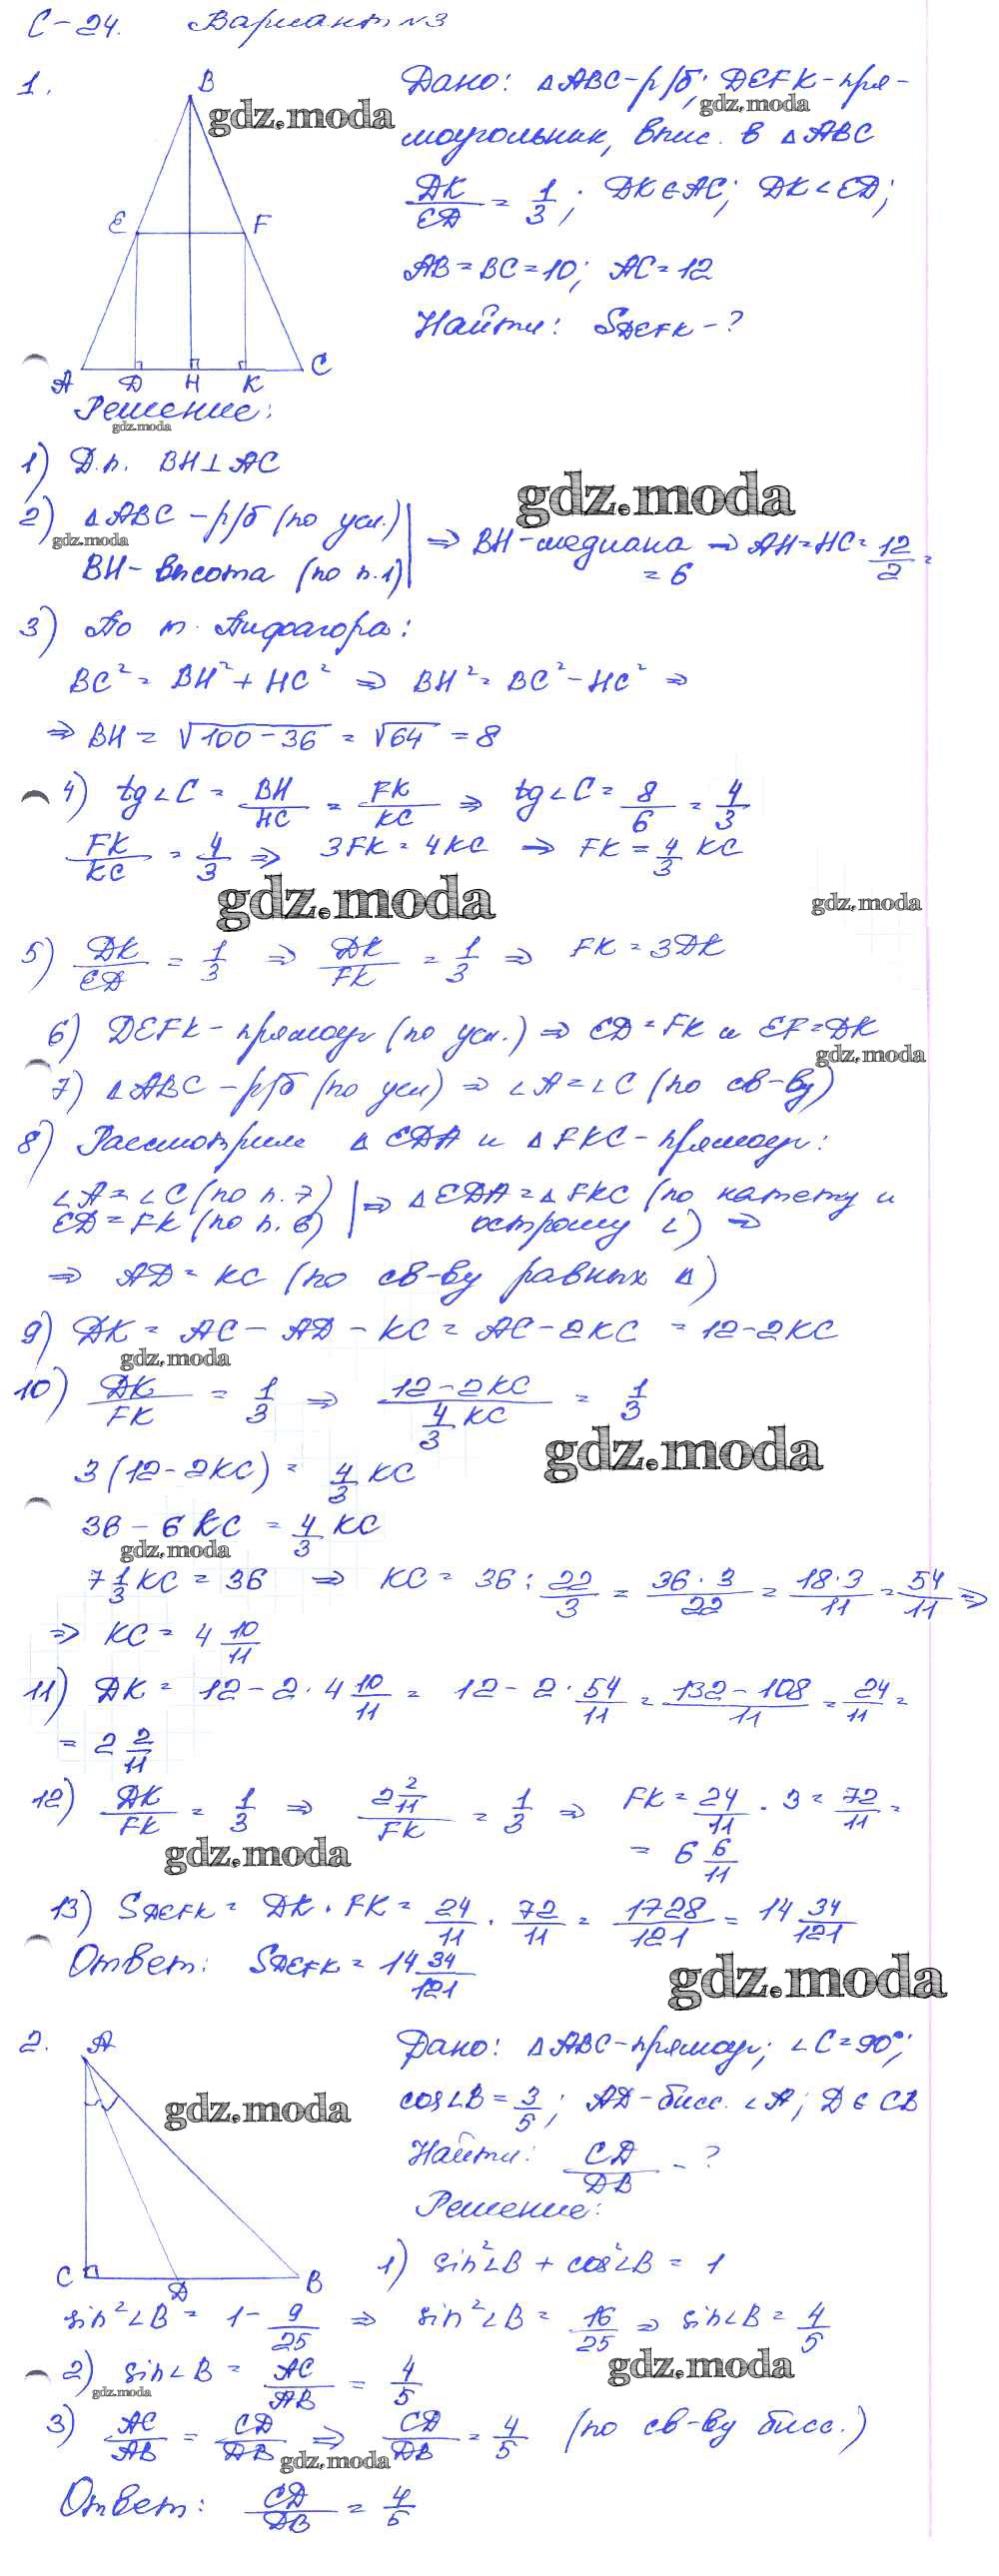 С-24. Вариант №3
1.
B
E F
A D H K C
Дано: △ABC-р/б; DEFK-пря-
моугольник, впис. в △ABC
DK/ED = 1/3; DK∈AC; DK<ED;
AB=BC=10; AC=12
Найти: S_DEFK-?
gdz.moda
gdz.moda
Решение:
gdz.moda
1) Д.п. BH⊥AC
gdz.moda
2) △ABC-р/б (по усл.) | ⇒ BH-медиана ⇒ AH=HC=12/2=
BH-высота (по п.1) | =6
gdz.moda
3) По т. Пифагора:
BC²=BH²+HC² ⇒ BH²=BC²-HC² ⇒
⇒ BH = √100-36 = √64 = 8
4) tg∠C = BH/HC = FK/KC ⇒ tg∠C = 8/6 = 4/3
FK/KC = 4/3 ⇒ 3FK=4KC ⇒ FK=4/3 KC
gdz.moda
gdz.moda
5) DK/ED = 1/3 ⇒ DK/FK = 1/3 ⇒ FK=3DK
6) DEFK-прямоуг (по усл.) ⇒ ED=FK и EF=DK
gdz.moda
7) △ABC-р/б (по усл) ⇒ ∠A=∠C (по св-ву)
8) Рассмотрим △EDA и △FKC-прямоуг:
∠A=∠C (по п.7) | ⇒ △EDA=△FKC (по катету и
ED=FK (по п.6) | острому ∠) ⇒
⇒ AD=KC (по св-ву равных △)
9) DK = AC-AD-KC = AC-2KC = 12-2KC
gdz.moda
10) DK/FK = 1/3 ⇒ 12-2KC / 4/3 KC = 1/3
gdz.moda
3(12-2KC) = 4/3 KC
36-6KC = 4/3 KC
gdz.moda
7 1/3 KC = 36 ⇒ KC = 36 : 22/3 = 36·3/22 = 18·3/11 = 54/11 ⇒
⇒ KC = 4 10/11
11) DK = 12-2·4 10/11 = 12-2·54/11 = 132-108/11 = 24/11 =
= 2 2/11
12) DK/FK = 1/3 ⇒ 2 2/11 / FK = 1/3 ⇒ FK = 24/11 · 3 = 72/11 =
= 6 6/11
gdz.moda
13) S_DEFK = DK·FK = 24/11 · 72/11 = 1728/121 = 14 34/121
Ответ: S_DEFK = 14 34/121
gdz.moda
2.
A
C D B
gdz.moda
Дано: △ABC-прямоуг; ∠C=90°;
cos∠B=3/5; AD-бисс. ∠A; D∈CB
Найти: CD/DB - ?
Решение:
1) sin²∠B + cos²∠B = 1
sin²∠B = 1-9/25 ⇒ sin²∠B = 16/25 ⇒ sin∠B = 4/5
gdz.moda
2) sin∠B = AC/AB = 4/5
gdz.moda
3) AC/AB = CD/DB ⇒ CD/DB = 4/5 (по св-ву бисс.)
gdz.moda
Ответ: CD/DB = 4/5